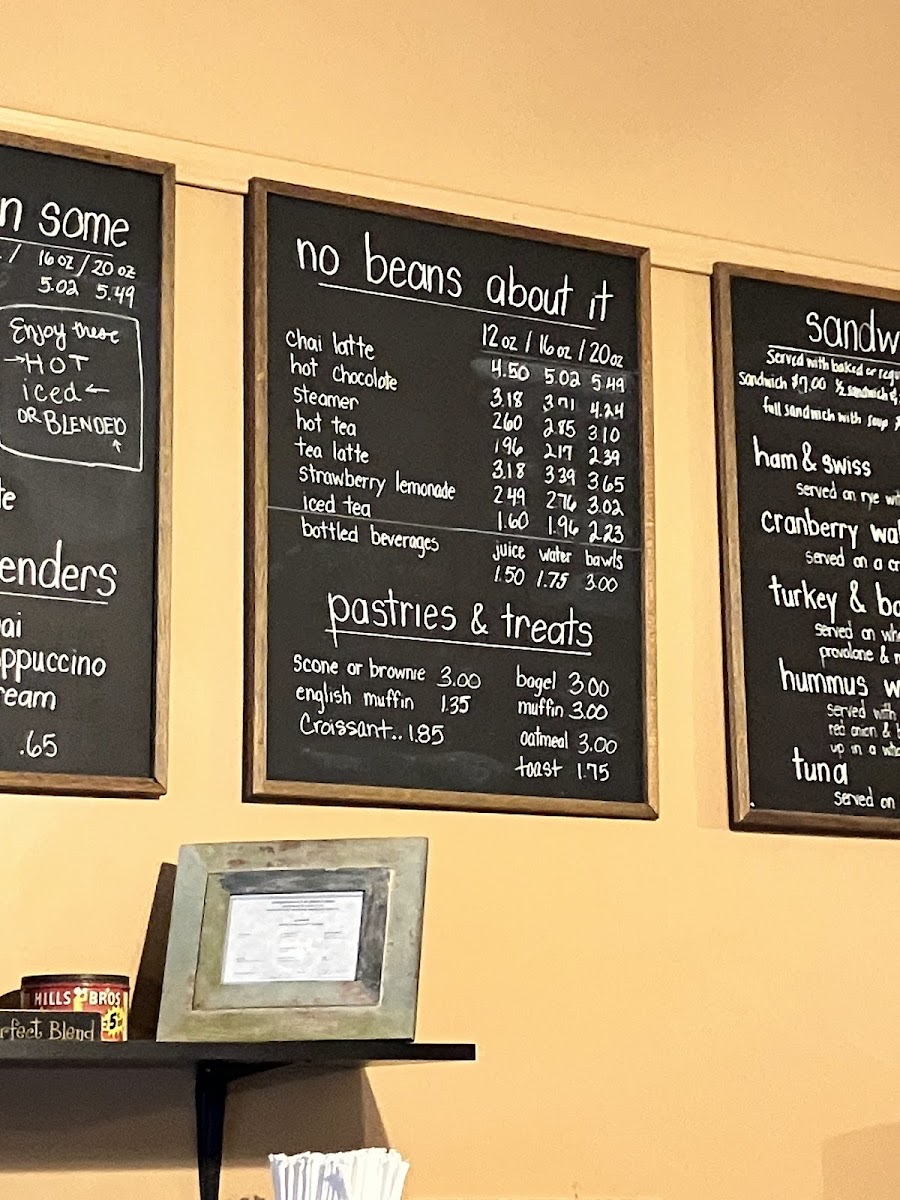 n some
16 oz / 20 oz
5.02 5.49
Enjoy these
→HOT
iced←
OR BLENDED
enders
ai
ppuccino
ream
.65
no beans about it
12 oz / 16 oz / 20 oz
chai latte 4.50 5.02 5.49
hot chocolate 3.18 3.71 4.24
steamer 2.60 2.85 3.10
hot tea 1.96 2.17 2.39
tea latte 3.18 3.39 3.65
strawberry lemonade 2.49 2.76 3.02
iced tea 1.60 1.96 2.23
bottled beverages juice water bawls
1.50 1.75 3.00
pastries & treats
scone or brownie 3.00 bagel 3.00
english muffin 1.35 muffin 3.00
Croissant.. 1.85 oatmeal 3.00
toast 1.75
sandw
Served with baked or regu
sandwich $7.00 ½ sandwich &
full sandwich with soup
ham & swiss
served on rye wit
cranberry wal
served on a cr
turkey & ba
served on whe
provolone &
hummus w
served with
red onion &
up in a who
tuna
served on
HILLS BROS
5¢
rfect Blend